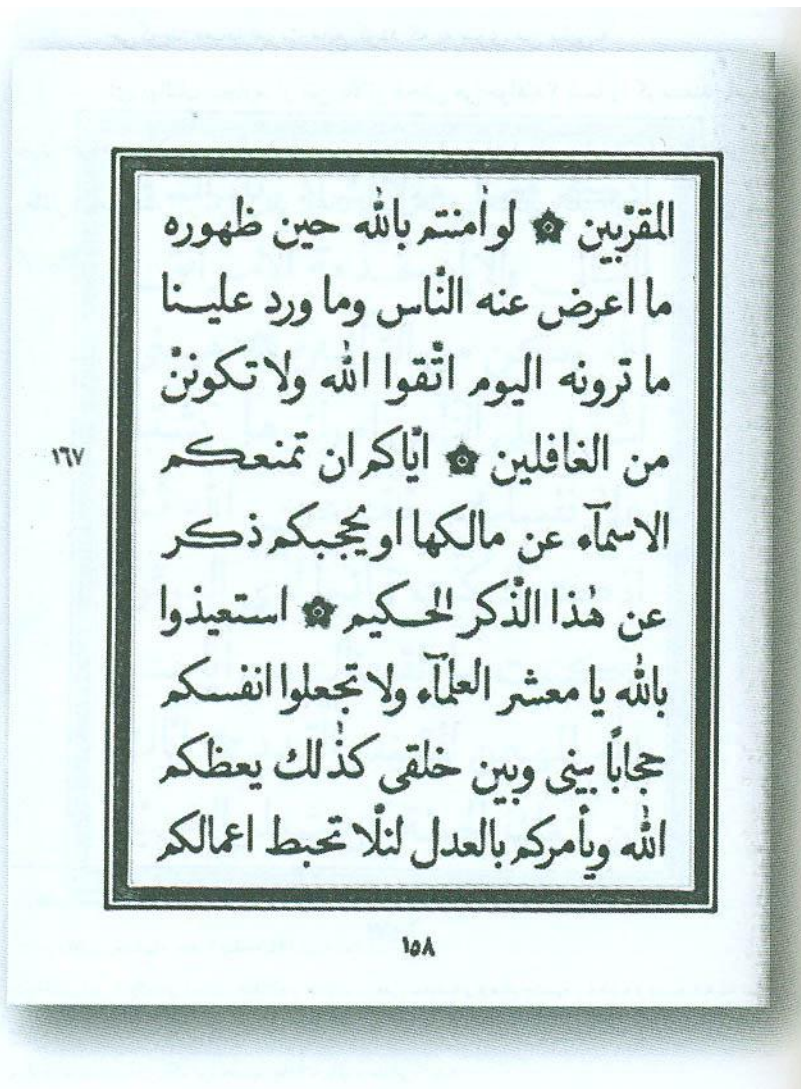 المقرّبين ۞ لو اٰمنتم باللّٰه حين ظهوره
ما اعرض عنه النّاس وما ورد علينا
ما ترونه اليوم اتّقوا اللّٰه ولا تكوننّ
١٦٧
من الغافلين ۞ ايّاكم ان تمنعكم
الاسمآء عن مالكها او يحجبكم ذكر
عن هٰذا الذّكر الحكيم ۞ استعيذوا
باللّٰه يا معشر العلمآء ولا تجعلوا انفسكم
حجابًا بينى وبين خلقى كذٰلك يعظكم
اللّٰه ويأمركم بالعدل لئلّا تحبط اعمالكم
١٥٨